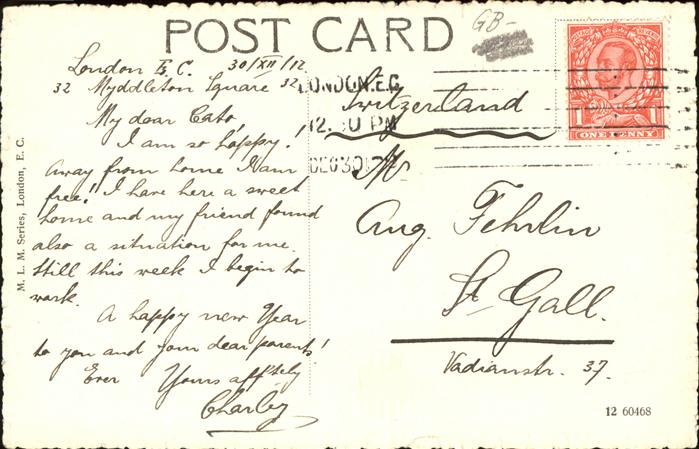 POST CARD
GB-
London E.C. 30/XII/12
32 Myddleton Square 32
My dear Cato,
I am so happy!
Away from home I am
free! I have here a sweet
home and my friend found
also a situation for me.
Still this week I begin to
work.
A happy new Year
to you and your dear parents!
Ever Yours aff'tely
Charley
LONDON.E.C
12. 0 PM
DEC 30
Switzerland
Aug. Fehrlin
St. Gall.
Vadianstr. 37.
POSTAGE REVENUE
1
ONE PENNY
M. L. M. Series, London, E. C.
12 60468